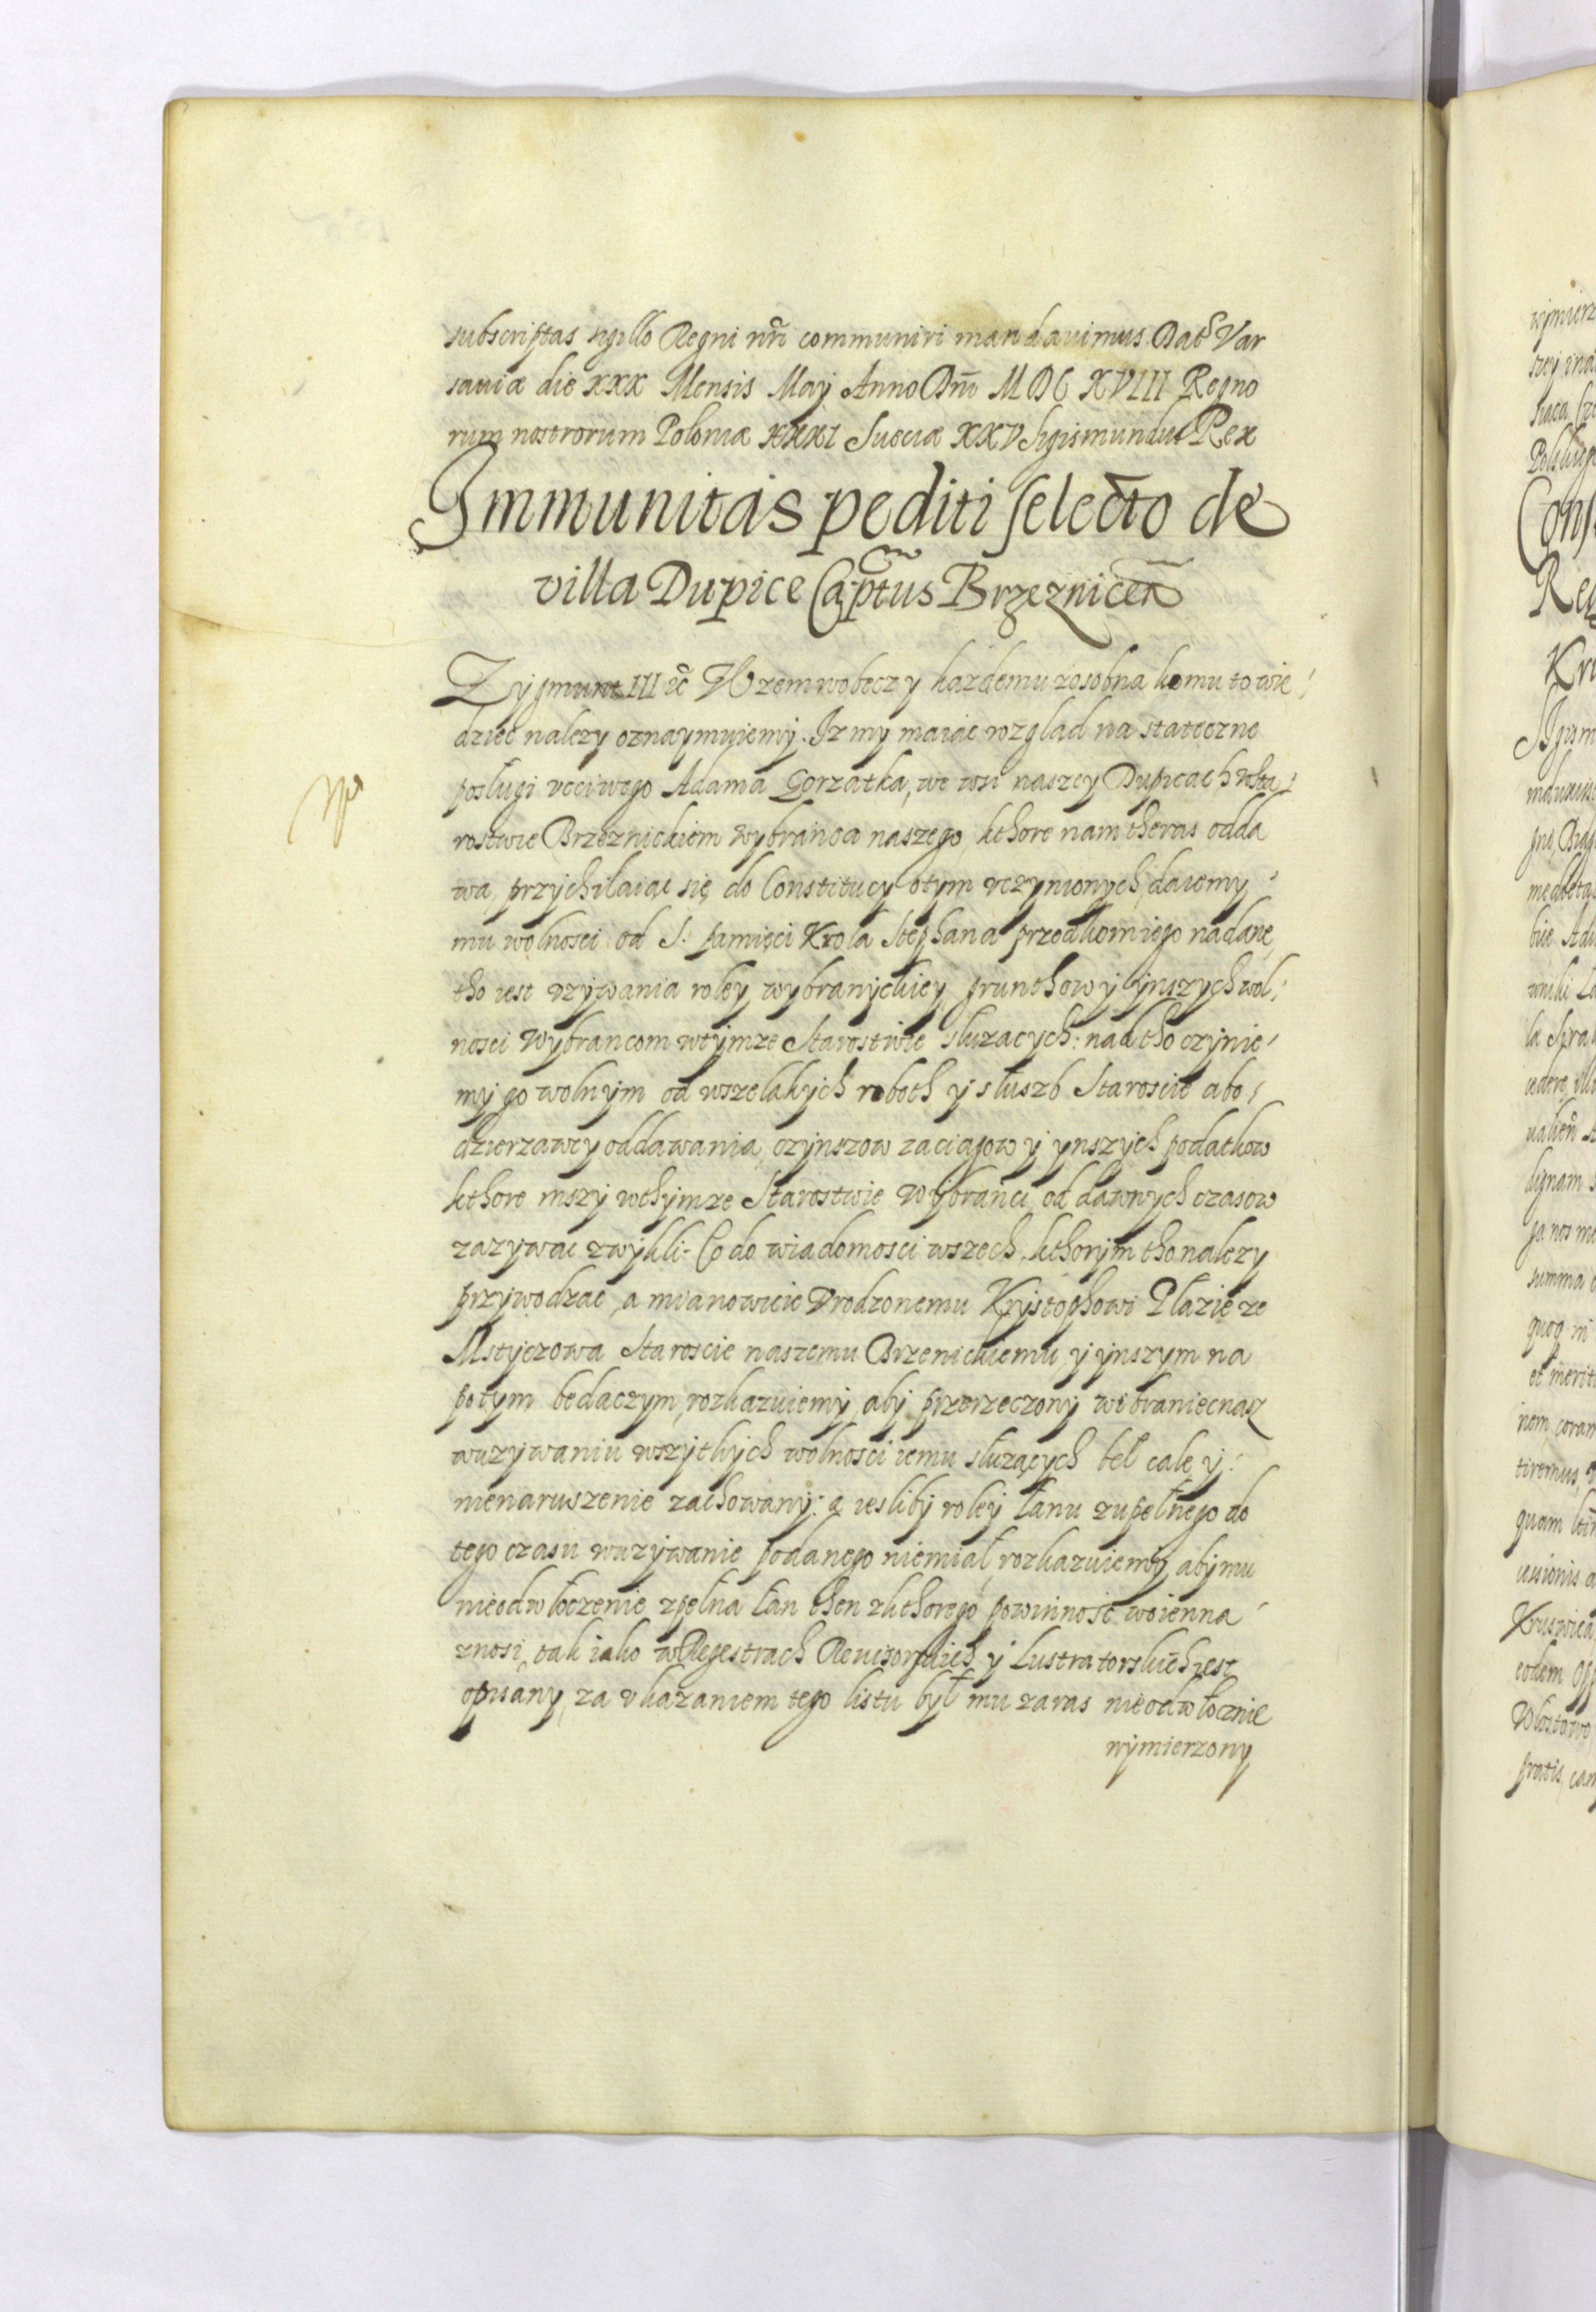 subscriptas sigillo Regni nri communiri mandavimus. Dat Var
saviæ die XXX Mensis Maij Anno Dni MDCXVIII Regno
rum nostrorum Poloniæ XXXI Sueciæ XXV Sigismundus Rex
Immunitas pediti selecto de
villa Dupice Captus Brzeznicen
Zygmunt III etc Wszem wobecz y kazdemu zosobna komu to wie
dziec nalezy oznaymuiemy. Iz my maiąc wzglad na stateczne
posługi ucciwego Adama Gorzałka, we wsi naszey Dupicach wsta
rostwie Brzeznickiem wybranca naszego, kthore nam theras odda
wa, przychilaiąc się do Constitucy otym uczynionych, daiemy
mu wolnosci od S. pamięci Krola Stephana przodkom iego nadane,
tho iest uzywania roley wybranyckiey gruntow y ynszych wol
nosci Wybrancom wtymze Starostwie sluzacych: nad tho czynie
my go wolnym od wszelakych roboth y sluszb Staroscie abo
dzierzawcy oddawania, czynszow zaciagow y ynszych podatkow
kthore inszy wthymze Starostwie Wybranci od dawnych czasow
zazywac zwykli. Co do wiadomosci wszech kthorym tho nalezy
przywodząc, a mianowicie Urodzonemu Krystophowi Plazie ze
Mstyczowa Staroscie naszemu Brzenickiemu, y ynszym na
potym bedaczym, rozkazuiemy, aby przerzeczony wibraniec nasz
wuzywaniu wszytkych wolnosci iemu sluzących bel cale y
nienaruszenie zachowany: a iesliby roley łanu zupełnego do
tego czasu wuzywanie podanego niemiał, rozkazuiemy, aby mu
nieodwłoczenie zpełna łan then zkthorego powinnosc woienna
znosi, tak iako w Regestrach Rewizorskich y Lustratorskich iest
opisany, za ukazaniem tego listu był mu zaras nieodwłocznie
wymierzony